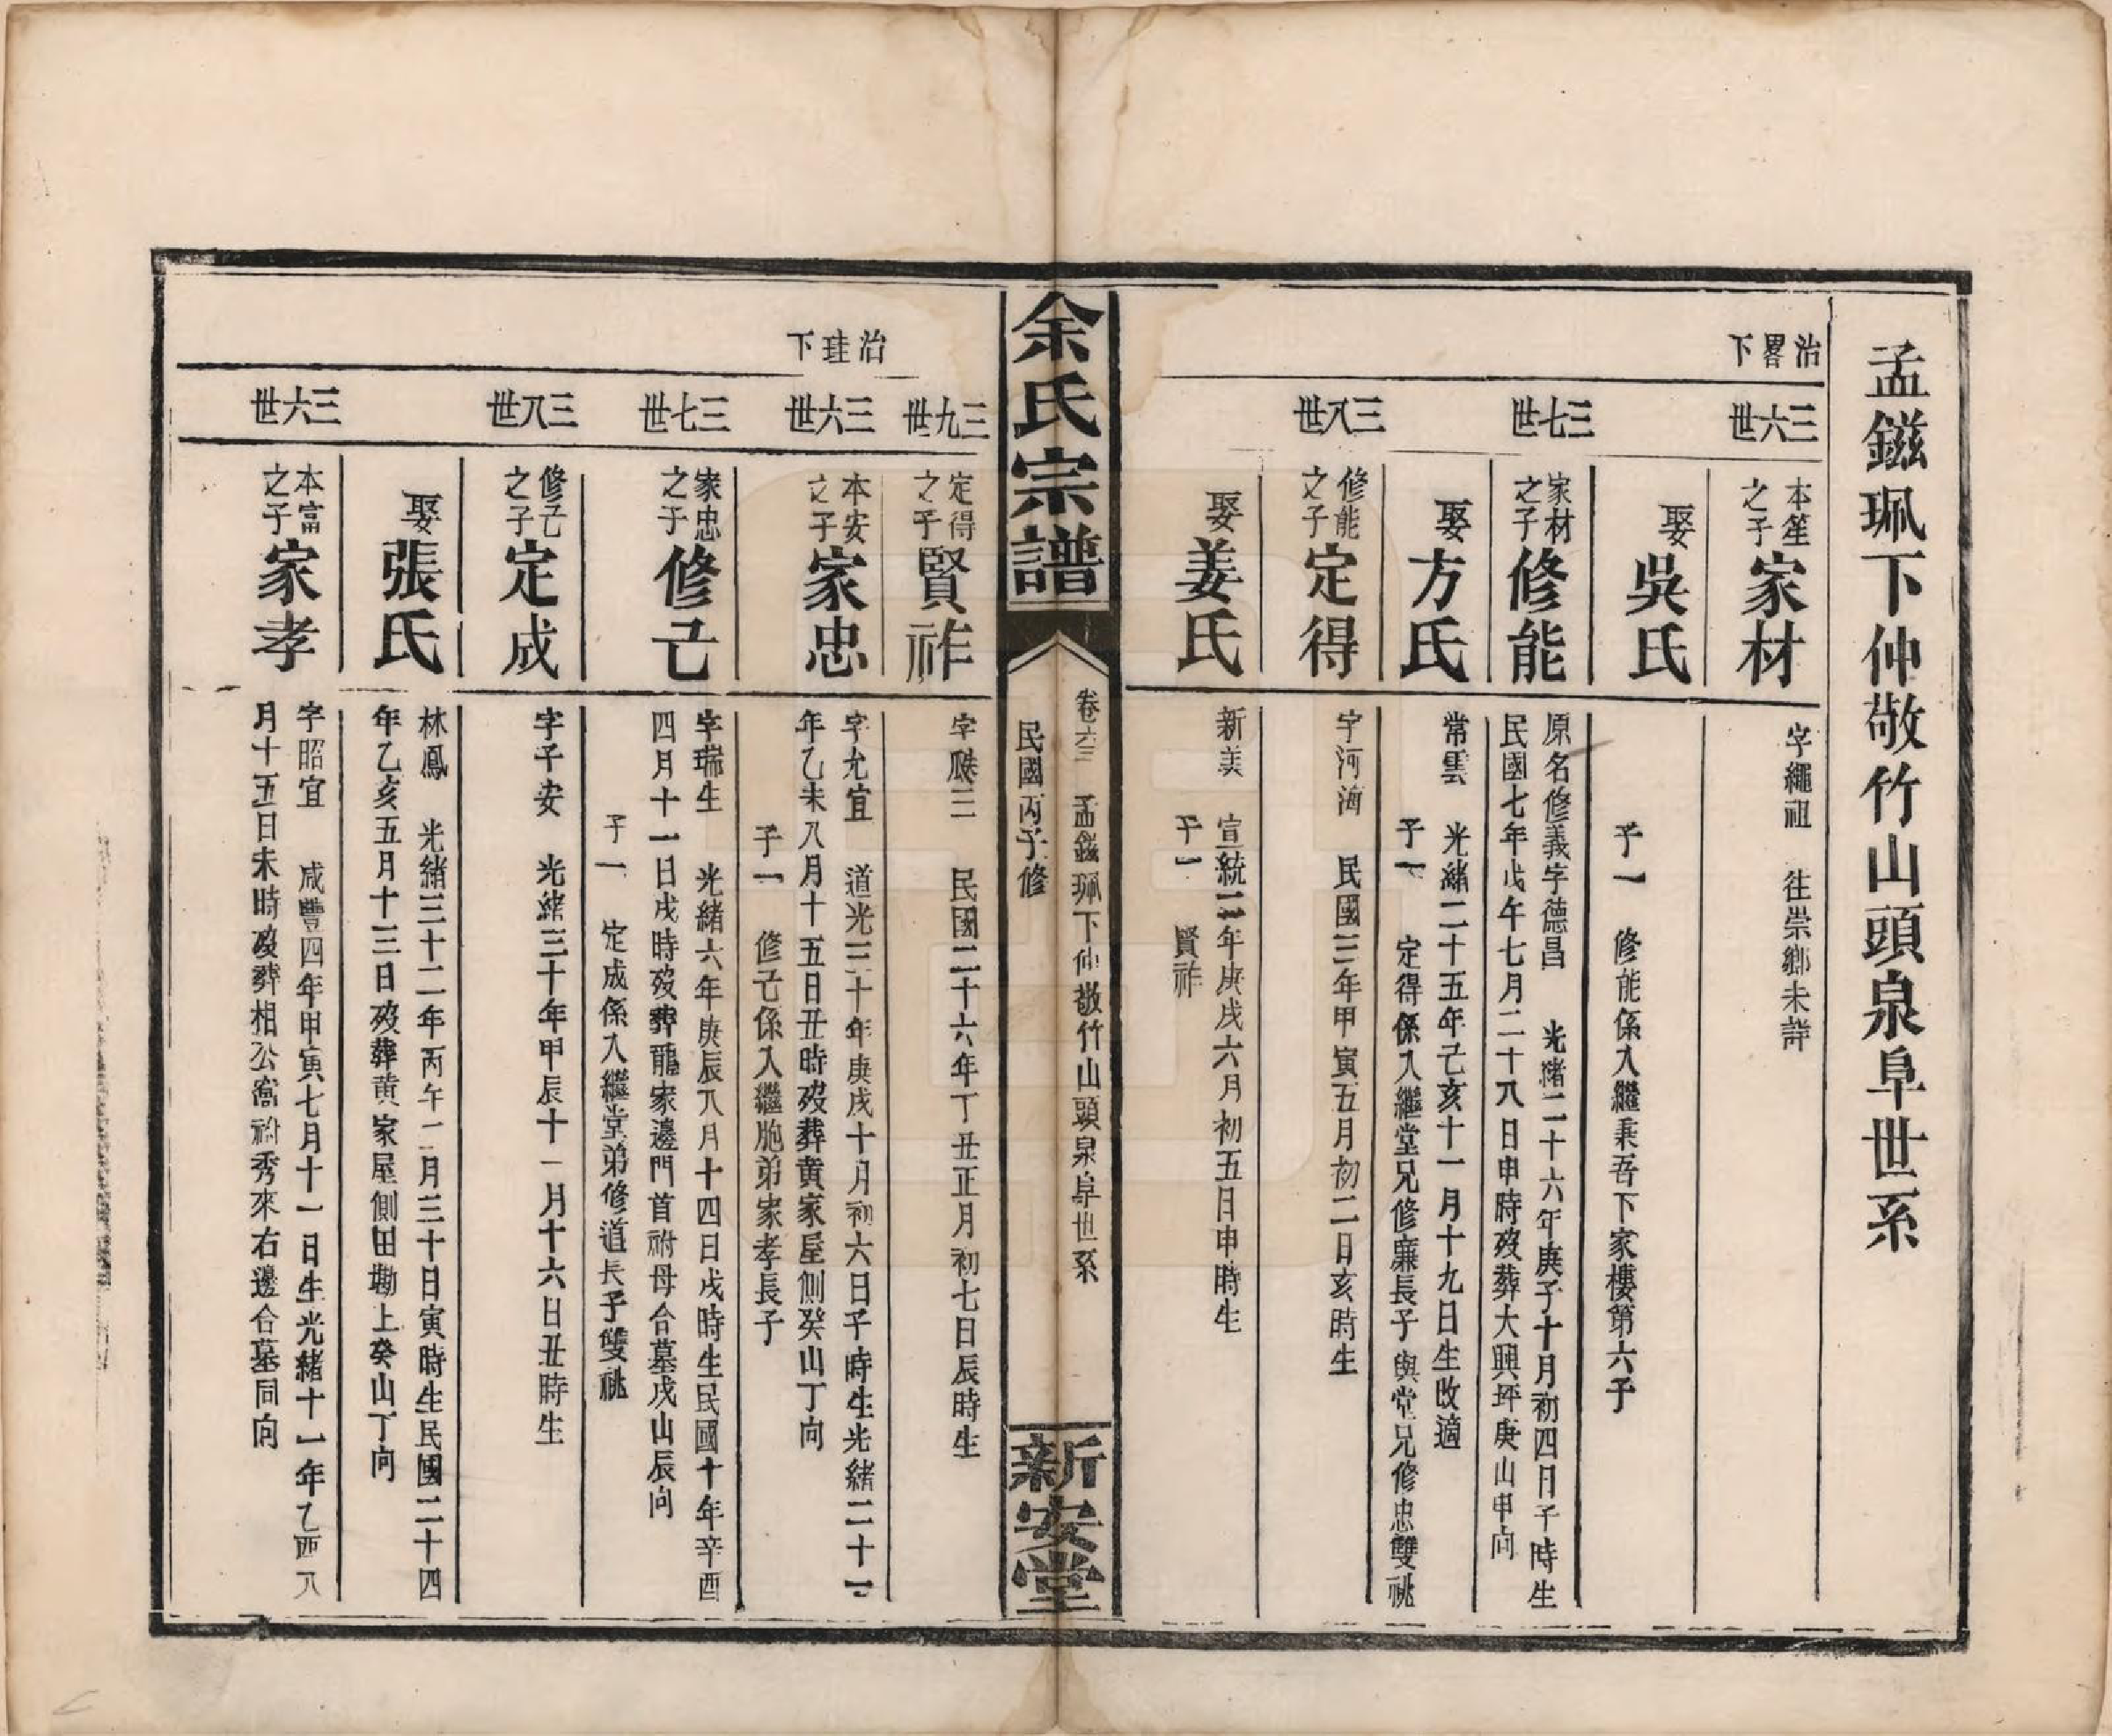 孟鎡珮下仲敬竹山頭泉阜世系
治畧下
三六世
本笙之子家材
字繩祖 往崇鄉未詳
娶吳氏
子一 修能係入繼秉吾下家樓第六子
三七世
家材之子修能
原名修義字德昌 光緒二十六年庚子十月初四日子時生
民國七年戊午七月二十八日申時歿葬大興坪庚山申向
娶方氏
常雲 光緒二十五年己亥十一月十九日生改適
子一 定得係入繼堂兄修廉長子與堂兄修忠雙祧
三八世
修能之子定得
字河海 民國三年甲寅五月初二日亥時生
娶姜氏
新美 宣統二年庚戌六月初五日申時生
子一 賢祚
余氏宗譜
卷六三 孟鎡珮下仲敬竹山頭泉阜世系
民國丙子修
新安堂
三九世
定得之子賢祚
字 三 民國二十六年丁丑正月初七日辰時生
治珪下
三六世
本安之子家忠
字允宜 道光三十年庚戌十月初六日子時生光緒二十一
年乙未八月十五日丑時歿葬黄家屋側癸山丁向
子一 修己係入繼胞弟家孝長子
三七世
家忠之子修己
字瑞生 光緒六年庚辰八月十四日戌時生民國十年辛酉
四月十一日戌時歿葬龍家邊門首祔母合墓戌山辰向
子一 定成係入繼堂弟修道長子雙祧
三八世
修己之子定成
字子安 光緒三十年甲辰十一月十六日丑時生
娶張氏
林鳳 光緒三十二年丙午二月三十日寅時生民國二十四
年乙亥五月十三日歿葬黄家屋側田墈上癸山丁向
三六世
本富之子家孝
字昭宜 咸豐四年甲寅七月十一日生光緒十一年乙酉八
月十五日未時歿葬相公窩祔秀來右邊合墓同向